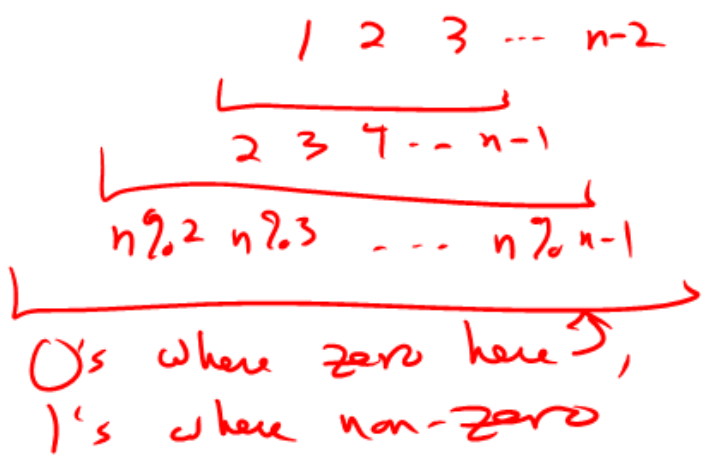 1 2 3 ... n-2
2 3 4 ... n-1
n%2 n%3 ... n%n-1
0's where zero here,
1's where non-zero